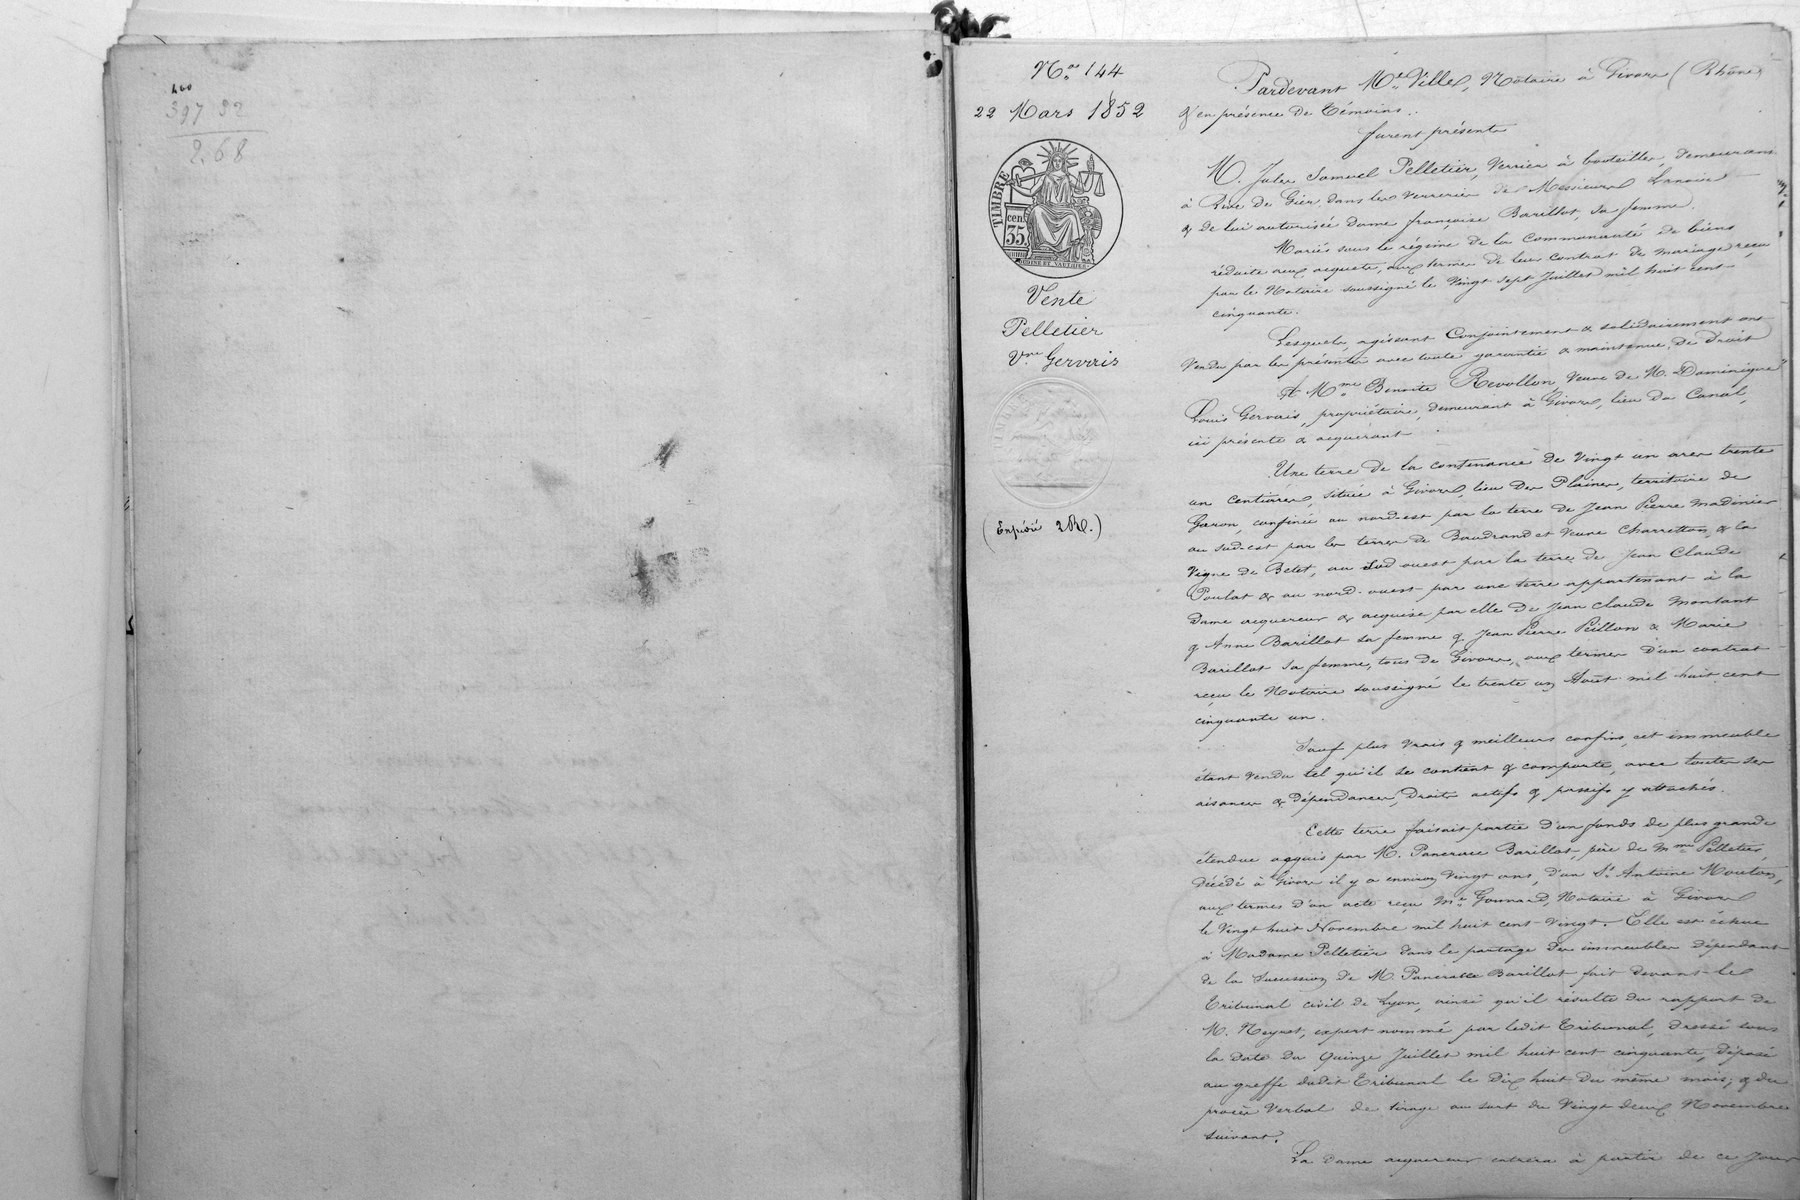 400
397 32
2.68
N.os 144
22 Mars 1852
TIMBRE
cen
35.
Vente
Pelletier
Vve Gervais
(Expédié 2 R.)
Pardevant Me Ville, Notaire à Givors (Rhône)
& en présence de Témoins..
furent présents
M. Jules Samuel Pelletier, Verrier à bouteilles, demeurant
à Rive de Gier, dans les verreries de Messieurs
& de lui autorisée Dame françoise Barillot, sa femme.
Mariés sous le régime de la Communauté de biens
réduite aux acquets, aux termes de leur contrat de mariage reçu
par le Notaire soussigné le Vingt sept Juillet mil huit cent
cinquante.
Lesquels, agissant Conjointement & solidairement ont
Vendu par les présentes avec toute garantie & maintenue de Droit
A Mme Benoite Revollon, Veuve de M. Dominique
Louis Gervais, propriétaire, demeurant à Givors, lieu du Canal,
ici présente & acquérant
Une terre de la contenance de Vingt un ares trente
un centiares, située à Givors, lieu Des Plaines, territoire de
Garon, confinée au nord-est par la terre de Jean Pierre Madinier
au sud-est par les terres de Baudrand et Veuve Charretton, & la
Vigne de Betet, au Sud ouest par la terre de Jean Claude
Poulat & au nord-ouest par une terre appartenant à la
Dame acquereur & acquise par elle de Jean Claude Montant
& Anne Barillot sa femme & Jean Pierre Peillon & Marie
Barillot sa femme, tous de Givors, aux termes d'un contrat
reçu le Notaire soussigné le trente un Août mil huit cent
cinquante un.
Sauf plus vrais & meilleurs confins, cet immeuble
étant vendu tel qu'il se contient & comporte, avec toutes ses
aisances & dépendances, Droits actifs & passifs y attachés.
Cette terre faisait partie d'un fonds de plus grande
étendue acquis par M. Pancrace Barillot, père de Mme Pelletier,
décédé à Givors il y a environ vingt ans, d'un St. Antoine Mouton,
aux termes d'un acte reçu Me Gonnard, Notaire à Givors
le Vingt huit Novembre mil huit cent vingt. Elle est échue
à Madame Pelletier dans le partage des immeubles dépendant
de la succession de M. Pancrace Barillot fait devant le
Tribunal civil de Lyon, ainsi qu'il résulte du rapport de
M. Neyret, expert nommé par ledit Tribunal, dressé sous
la date du quinze Juillet mil huit cent cinquante, déposé
au greffe dudit Tribunal le Dix huit du même mois; & du
procès verbal de tirage au sort du Vingt deux Novembre
suivant.
La dame acquereur entrera à partir de ce jour